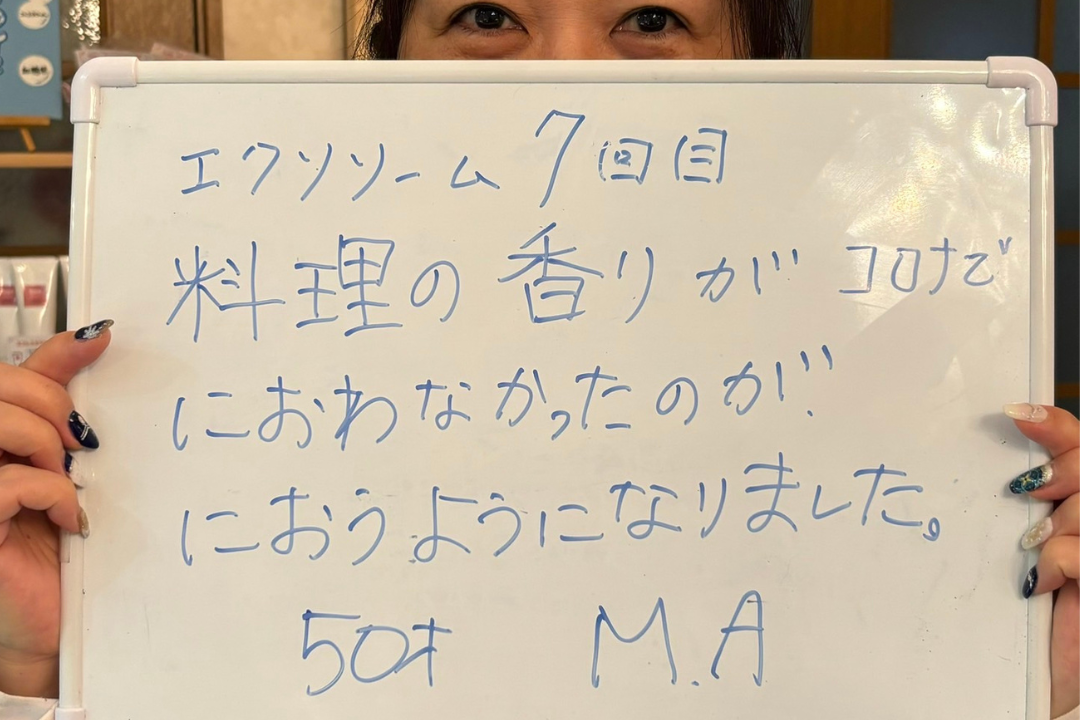 エクソソーム7回目
料理の香りがコロナで
におわなかったのが、
におうようになりました。
50才 M.A